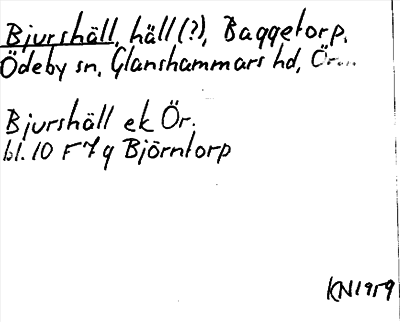 Bjurshäll, häll (?), Baggetorp.
Ödeby sn, Glanshammars hd, Ör...
Bjurshäll ek Ör.
bl. 10 F 7 q Björntorp
KN1959